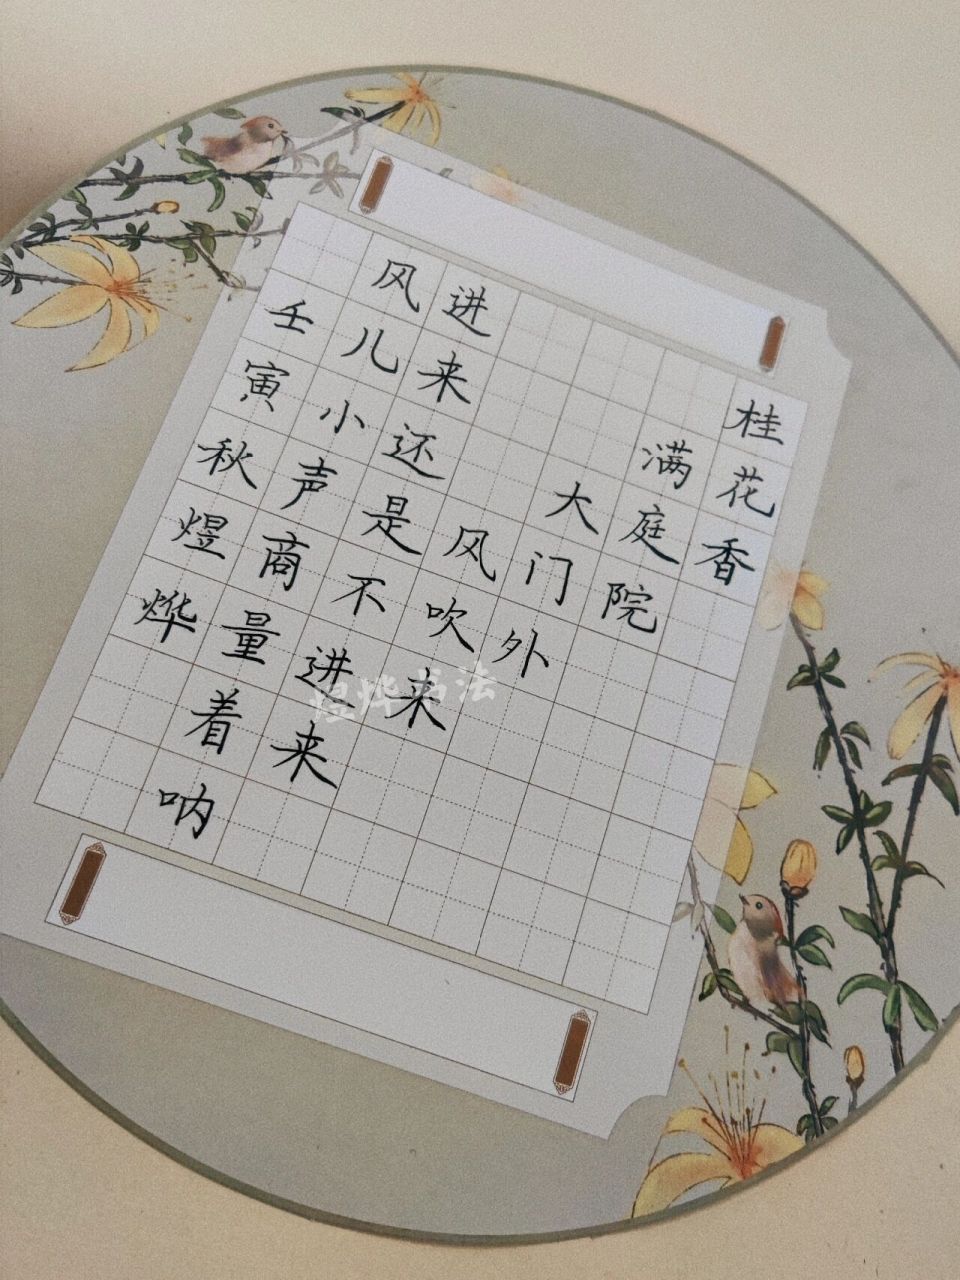 桂花香
满庭院
大门外
风吹来
进来还是不进来
风儿小声商量着呐
壬寅秋煜烨
煜烨书法